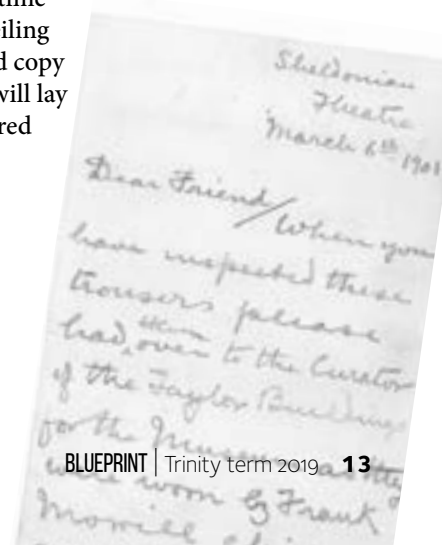 time
iling
d copy
will lay
red
Sheldonian
Theatre
March 6th 1901
Dear Friend/When you
have inspected these
trousers please
had, them over to the Curator
of the Taylor Buildings
for the Museum as they
were worn by Frank
BLUEPRINT | Trinity term 2019 13